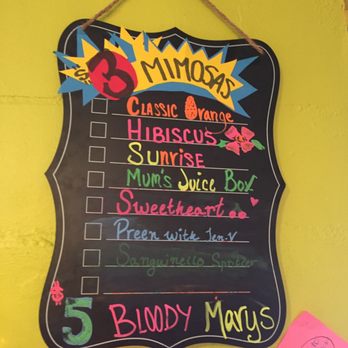 $3 MIMOSAS
Classic Orange
Hibiscus
Sunrise
Mum's Juice Box
Sweetheart
Preen with Jen.V
Sanguinello Spritzer
$5 Bloody Marys